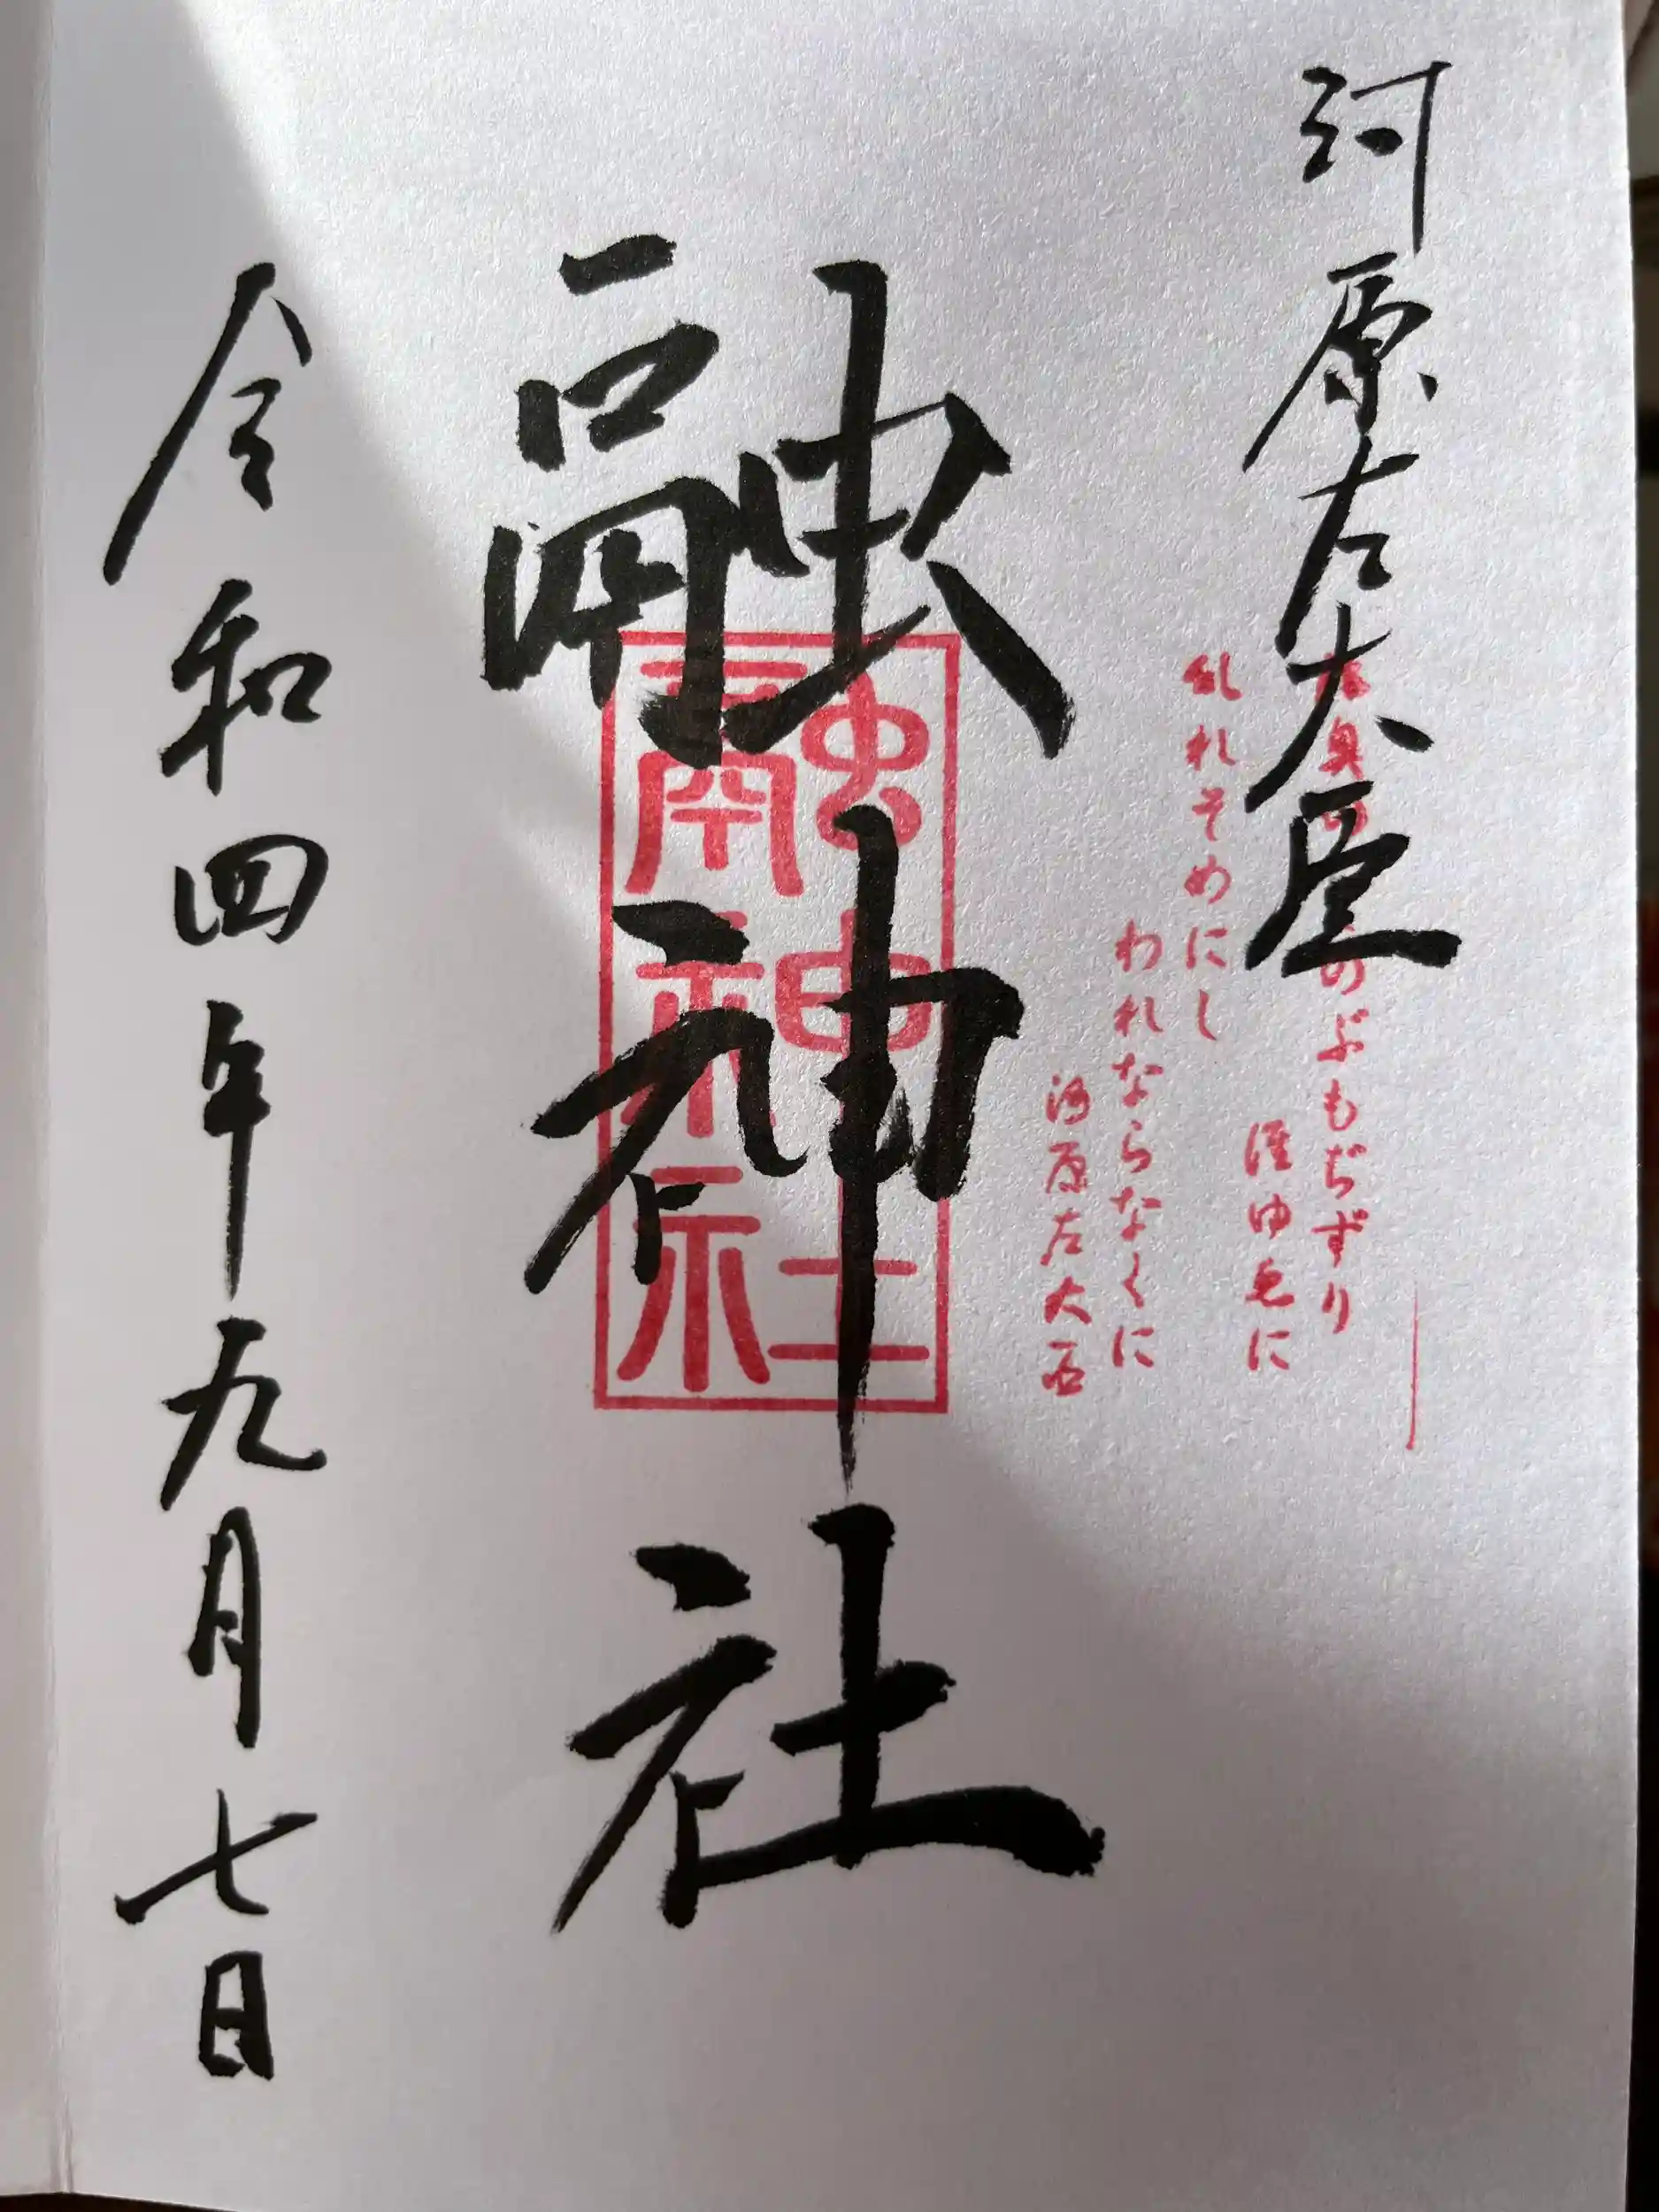 河原左大臣
陸奥のしのぶもぢずり
誰ゆゑに
乱れそめにし
われならなくに
河原左大臣
融神社
融神社
令和四年九月七日